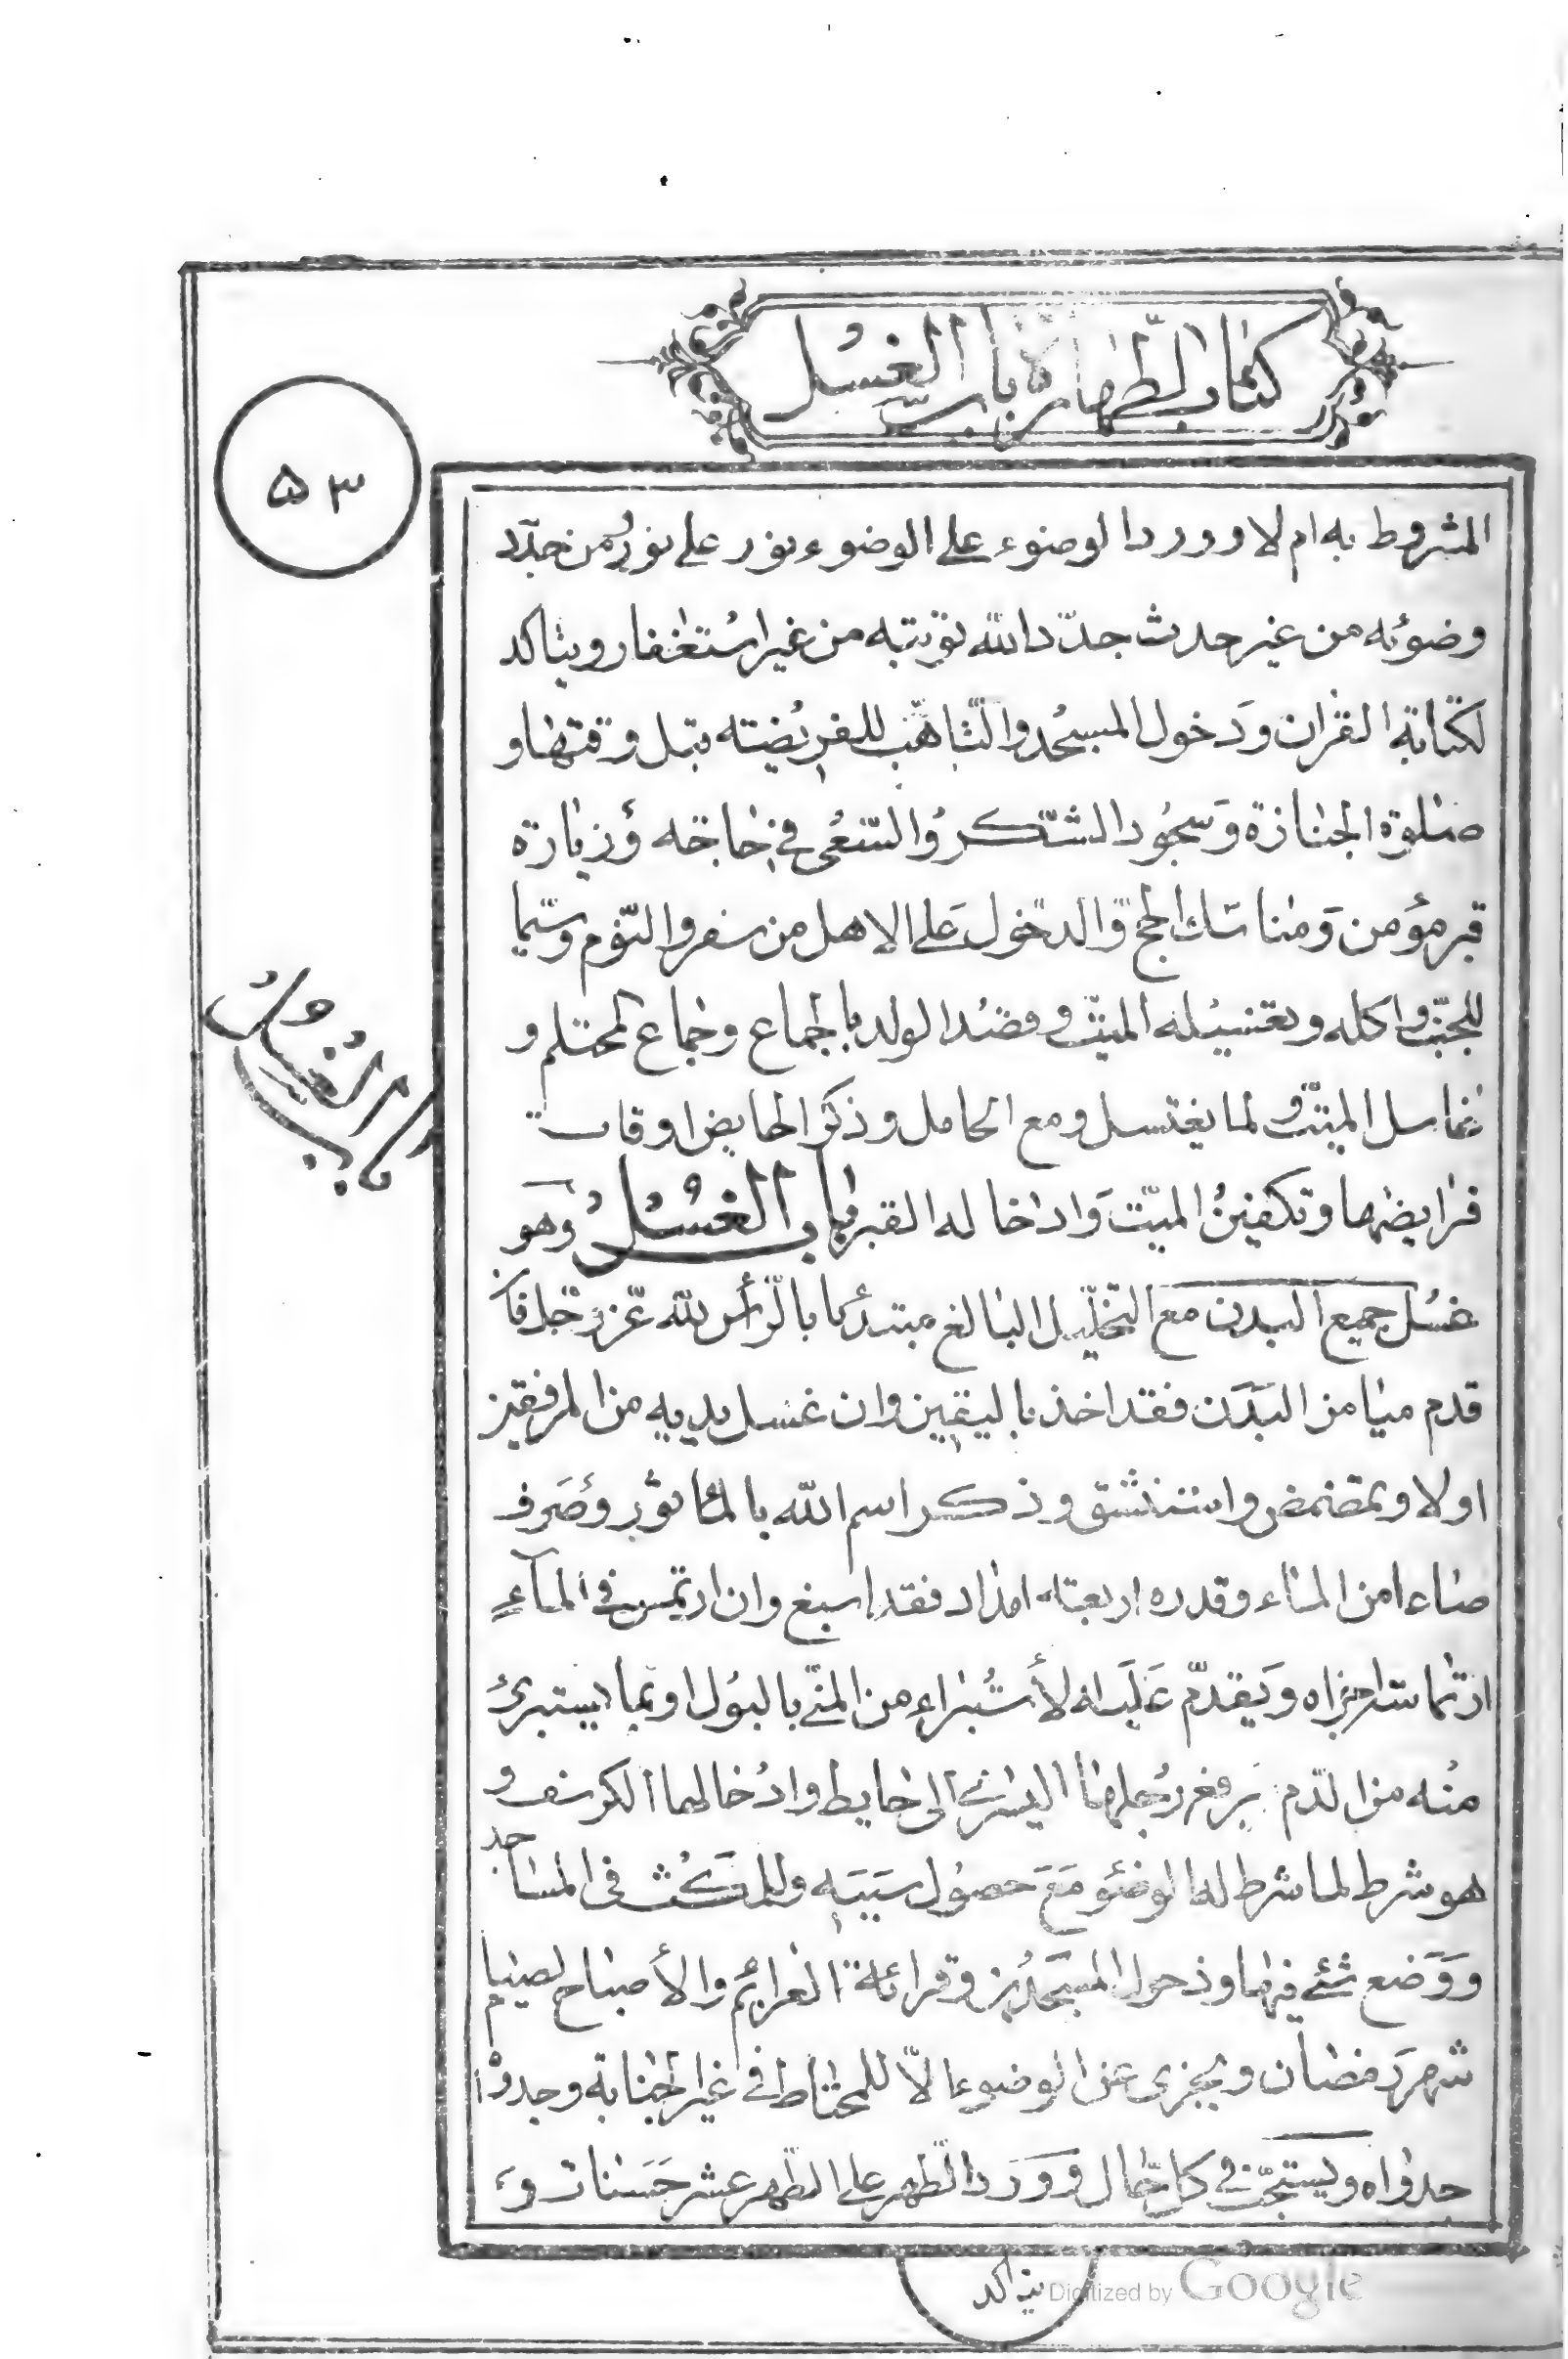 كتاب الطهارة باب الغسل
۵۳
المشروط به ام لا وورد الوضوء على الوضوء نور على نور من جدّد
وضوئه من غير حدث جدّد الله توبته من غير استغفار ويتاكد
لكتابة القران ودخول المسجد والتاهّب للفريضته قبل وقتها و
صلوة الجنازة وسجود الشّكر والسّعى في حاجته وزيارة
قبر مؤمن ومناسك الحج والدخول على الاهل من سفر والنّوم وسيّما
للجنب واكله وتغسيله الميّت وقصد الولد بالجماع وجماع المحتلم و
غاسل الميّت ولما يغتسل ومع الحامل وذكر الحايض اوقات
فرايضها وتكفين الميّت وادخاله القبر باب الغسل وهو
غسل جميع البدن مع التخليل البالغ مبتدئا بالرّأس لله عزّ وجلّ فان
قدم ميامن البدن فقد اخذ باليقين وان غسل يديه من المرفقين
اولا وتمضمض واستنشق وذكر اسم الله بالمأثور وصرف
صاعا من الماء وقدره اربعة امداد فقد اسبغ وان ارتمس في المآء
ارتماسا اجزاه ويقدّم عليه الأستبراء من المنّى بالبول او بما يستبرئ
منه من الدّم برفع رجلها اليسرى الى حايط وادخالها الكرسف و
هو شرط لما شرط له الوضئو مع حصول سببه وللمكث فى المساجد
ووضع شئ فيها ودخول المسجدين وقرائة العزايم والأصباح لصيام
شهر رمضان ويجزى عن الوضوء الاّ للمحتاط في غير الجنابة وجدوا
جدواه ويستحبّ في كل حال وورد الطّهر على الطّهر عشر حسنات و
يتاكد
باب الغسل
Digitized by Google